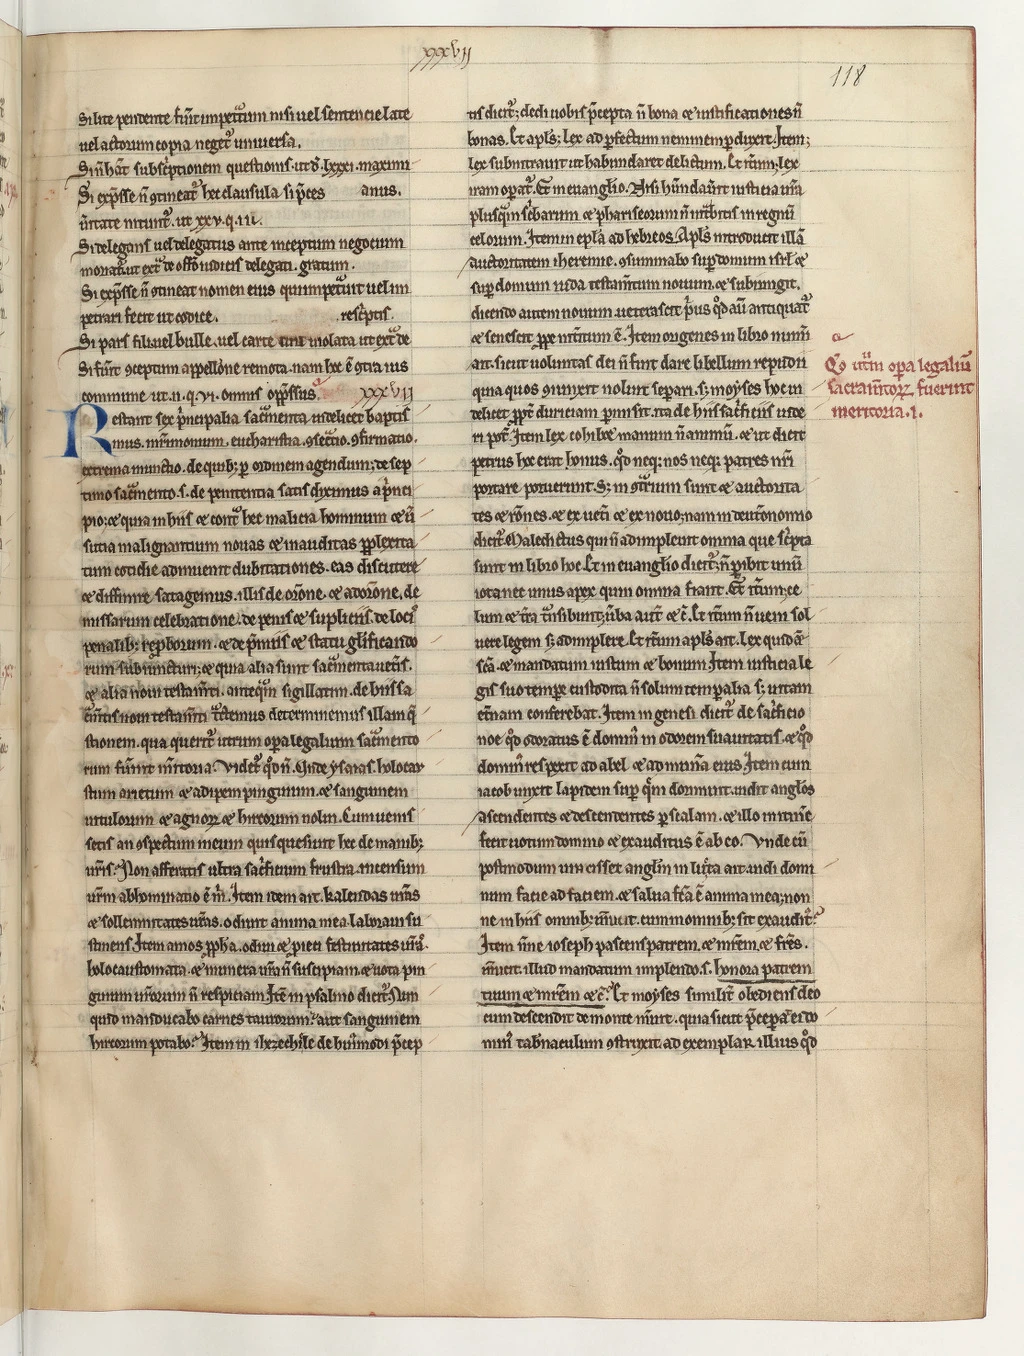 xxxvii
118
Si lite pendente fu̅it impet̾tum nisi uel sentencie late
uel actorum copia neget᷑ uniuersa.
Si n̅ hāt subsc̾ptionem questionis. ut d᷑. lxxxi. maximi
Si exp̅sse n̅ ꝯtineat᷑ hec clausula si p̅ces anus.
u̅itate nitunt᷑. ut xxv. q. iii.
Si delegans uel delegatus ante inceptum negocium
moriat᷑. ut ext᷑ de offo̅ iudicis delegati. gratum.
Si exp̅sse n̅ ꝯtineat nomen eius qui impet᷑uit uel im
petrari fecit ut codice. resc̾ptis.
Si pars fili uel bulle. uel carte sint uiolata ut ext᷑ de
Si fu̅it ꝯceptum appell̅one remota. nam hec ē ꝯtra ius
commune ut. ii. q. vi. omnis opp̅ssus. xxxvii
Restant sex p̾ncipalia sac̅menta uidelicet baptis
mus. mr̅imonium. eucharistia. ꝯsec̅tio. ꝯfirmatio.
extrema uunctio. de quib; ꝑ ordinem agendum; de sep
timo sac̅mento. s. de penitentia satis diximus a p̾nci
pio; ⁊ quia in hiis ⁊ cont᷑ hec malicia hominum ⁊ u̅
sutia malignantium nouas ⁊ inauditas ꝑplexita
tum cotidie adinuenit dubitationes. eas discutere
⁊ diffinire satagemus. illis de or̅one. ⁊ ador̅one, de
missarum celebratione. de penis ⁊ supliciis. de locis
penalib; rep̅borum. ⁊ de p̅miis ⁊ statu gl̅ificando
rum subiuncturi; ⁊ quia alia sunt sac̅menta uet̅is.
⁊ alia noui testam̅ti. anteq̅m sigillatim. de hiis sa
c̅mtis noui testam̅ti t̅ctemus determinemus illam q̅
stionem. qua querit᷑ utrum op̅a legalium sac̅mento
rum fu̅int m̅itoria. Videt᷑ qd̅ n̅. Unde ysaias. holocau
stum arietum ⁊ adipem pinguium. ⁊ sanguinem
uitulorum ⁊ agnoꝝ ⁊ hircorum nolui. Cum ueni
setis an̅ ꝯspectum meum quis quesiuit hec de manib;
ur̅is? Non afferatis ultra sac̾ficium frustra. incensum
ur̅m abhominatio ē m̅. Item idem ait. kalendas ur̅as
⁊ sollemnitates ur̅as. odiuit anima mea. laboraui su
stinens Item amos ꝓph̅a. odiui ⁊ proieci festiuitates ur̅as.
holocaustomata. ⁊ munera ur̅a n̅ suscipiam. ⁊ uota pin
guium ur̅orum n̅ respiciam Itē in psalmo dicit᷑. Num
quid manducabo carnes taurorum? aut sanguinem
hircorum potabo? Item in ihezechiele de hui̅modi p̅cep
tis dicit᷑; dedi uobis p̅cepta n̅ bona ⁊ iustificationes n̅
bonas. Et apl̅s; lex ad ꝑfectum neminem ꝑduxit. Item;
lex subintrauit ut habundaret delictum. Et it̅um; lex
iram op̅at᷑. Et in euanglio. Nisi hu̅ndau̅it iusticia ur̅a
plusq̅m sc̾barum ⁊ phariseorum n̅ int̅bitis in regnu̅
celorum. Item in epl̅a ad hebreos. Apl̅s introducit illā
auctoritatem iheremie. ꝯsummabo suꝑ domum isrl̅ ⁊
suꝑ domum iuda testam̅tum nouum. ⁊ subiungit.
dicendo autem nouum ueterascit p̾us qd̅ au̅ antiquat᷑
⁊ senescit ꝓpe int̅itum ē. Item origenes in libro num̅i
ait. sicut uoluntas dei n̅ fuit dare libellum repudii
quia quos ꝯiunxit noluit separi. s; moyses hoc iu
deis ꝓpt᷑ duriciam ꝑmisit. ita de hiis sac̾ficiis uide
ri pot̅. Item lex cohibe manum n̅ animu̅. ⁊ ut dicit
petrus hoc erat honus. qd̅ neq; nos neq; patres nr̅i
portare potuerunt. S; in ꝯt᷑rium sunt ⁊ auctorita
tes ⁊ r̅ones. ⁊ ex uet̅i ⁊ ex nouo; nam in deut̅onomio
dicit᷑. Maledictus qui n̅ adimpleuit omnia que sc̾pta
sunt in libro hoc. Et in euanglio dicit᷑; n̅ ꝑibit unu̅
iota nec unus apex quin omnia fiant. Et it̅um; ce
lum ⁊ t̅ra t᷑nsibunt; u̅ba aut̅ ⁊ c̅. Et it̅um n̅ ueni sol
uere legem s; adimplere. Et it̅um apl̅s ait. Lex quide̅
sc̅a. ⁊ mandatum iustum ⁊ bonum. Item iusticia le
gis suo tempore custodita n̅ solum temꝑalia s; uitam
et̅nam conferebat. Item in genesi dicit᷑ de sac̾ficio
noe qd̅ odoratus ē domin̅ in odorem suauitatis. ⁊ qd̅
domin̅ respexit ad abel ⁊ ad mun̅a eius Item cum
iacob unxit lapidem suꝑ que̅m dormiuit. uidit anglos
ascendentes ⁊ descendentes ꝑ scalam. ⁊ illo m̅tine̅
fecit uotum domino ⁊ exauditus ē ab eo. Vnde cu̅
postmodum uicisset anglm̅ in lucta ait. uidi domi
num facie ad faciem. ⁊ salua fc̅a ē anima mea; non
ne in hiis omnib; m̅uit. cum in omnib; sit exaudit᷑?
Item n̅ne ioseph pascens patrem. ⁊ mr̅em. ⁊ fr̅es.
m̅uit. illud mandatum implendo. s. honora patrem
tuum ⁊ mr̅em ⁊ c̅. Et moyses similit̅ obediens deo
cum descendit de monte m̅uit. quia sicut p̅cepat̅ ei do
min̅ tab̅naculum ꝯstruxit ad exemplar illius qd̅
Qo ut᷑m op̅a legaliu̅
sacram̅toꝝ fuerint
meritoria. i.